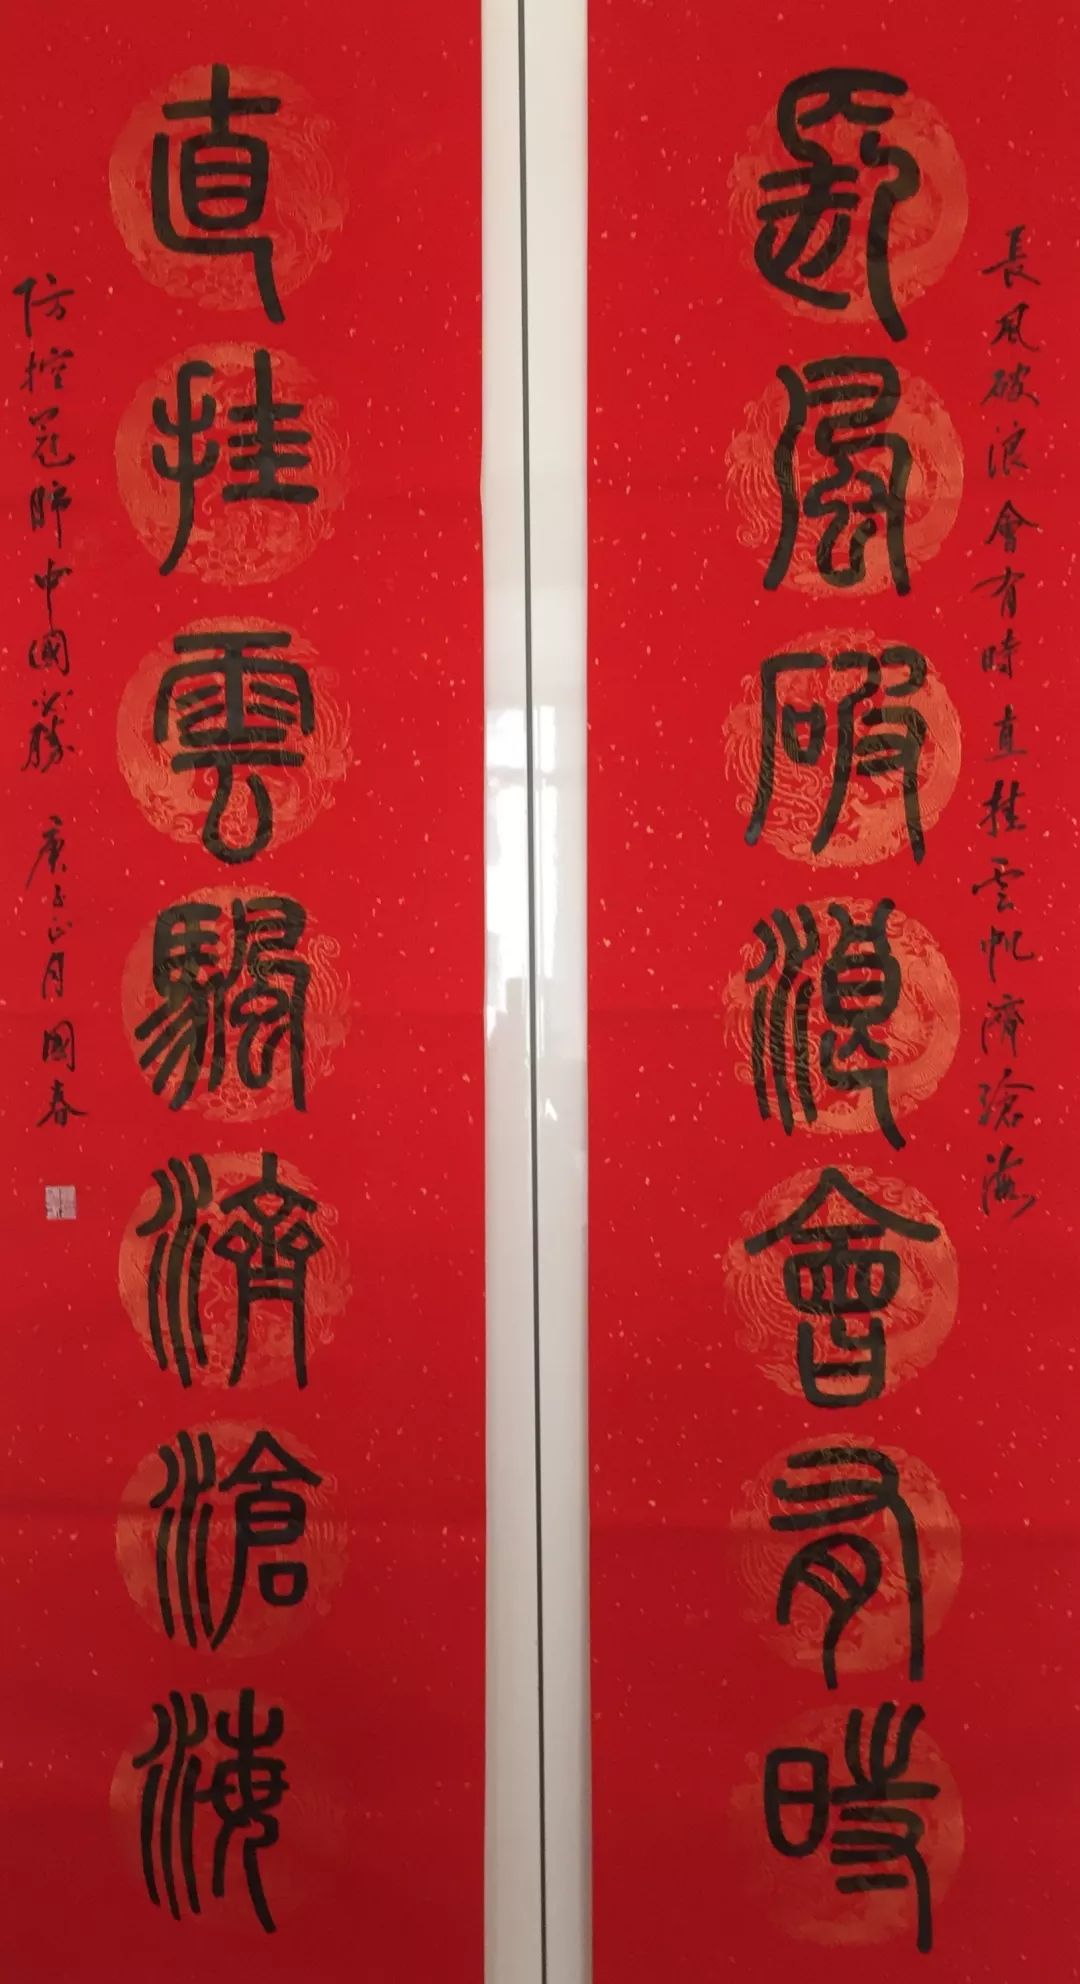 長風破浪會有時
長風破浪會有時直挂雲帆濟滄海
直挂雲颿濟滄海
防控冠肺中國必勝 庚子正月國春